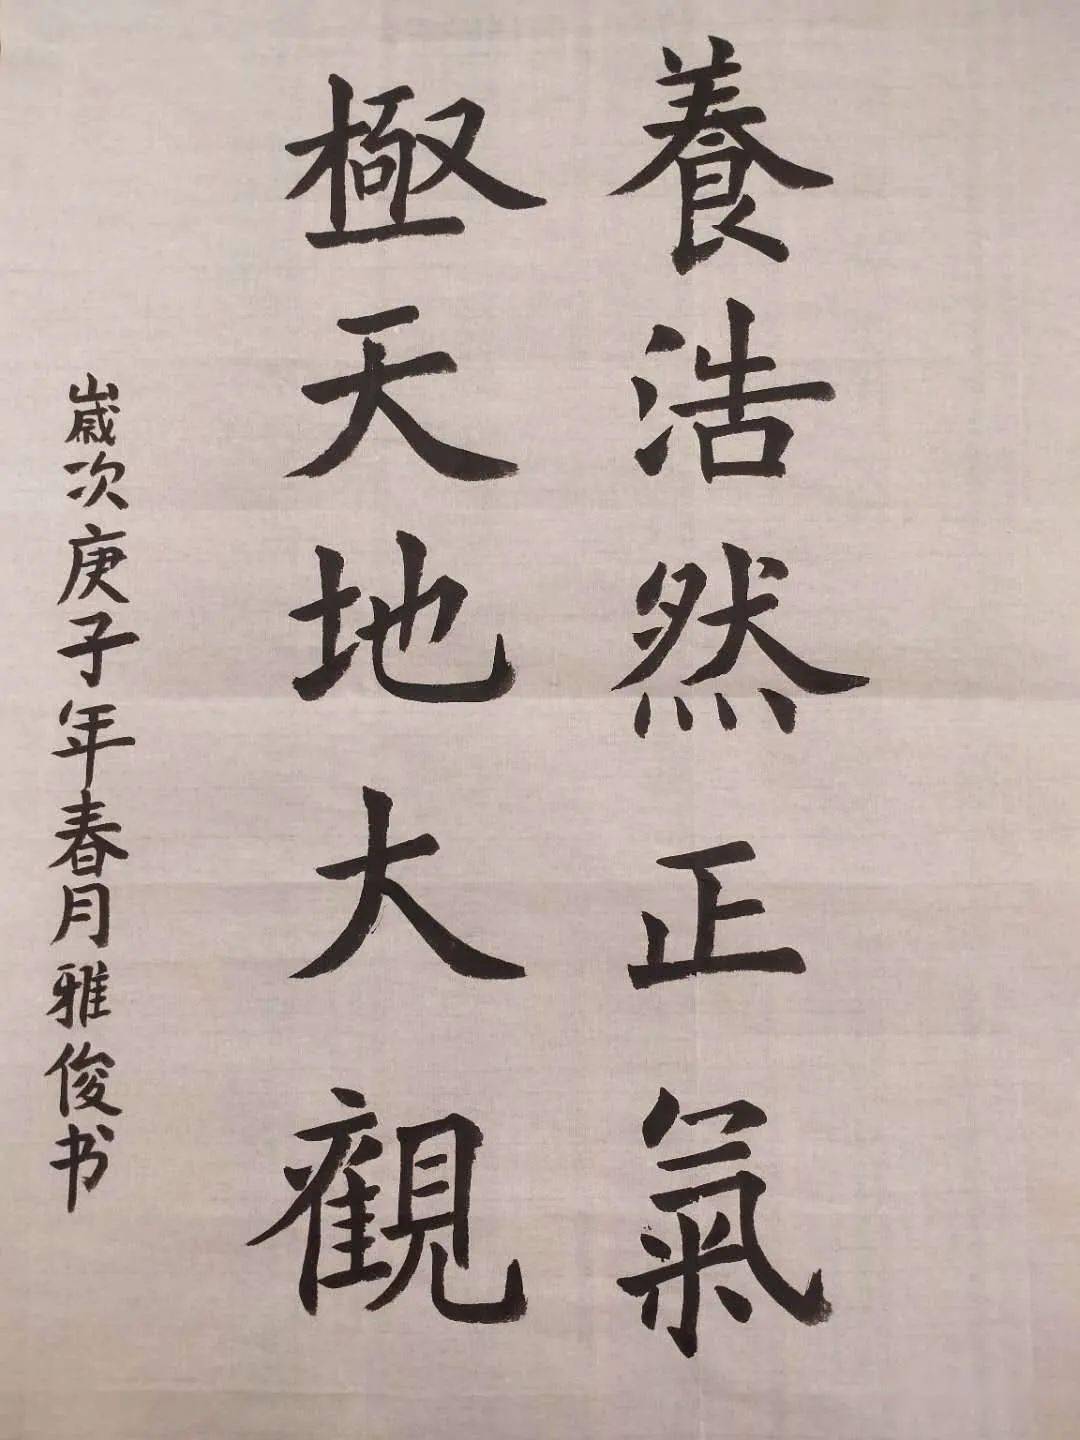 養浩然正氣
極天地大觀
歲次庚子年春月雅俊书